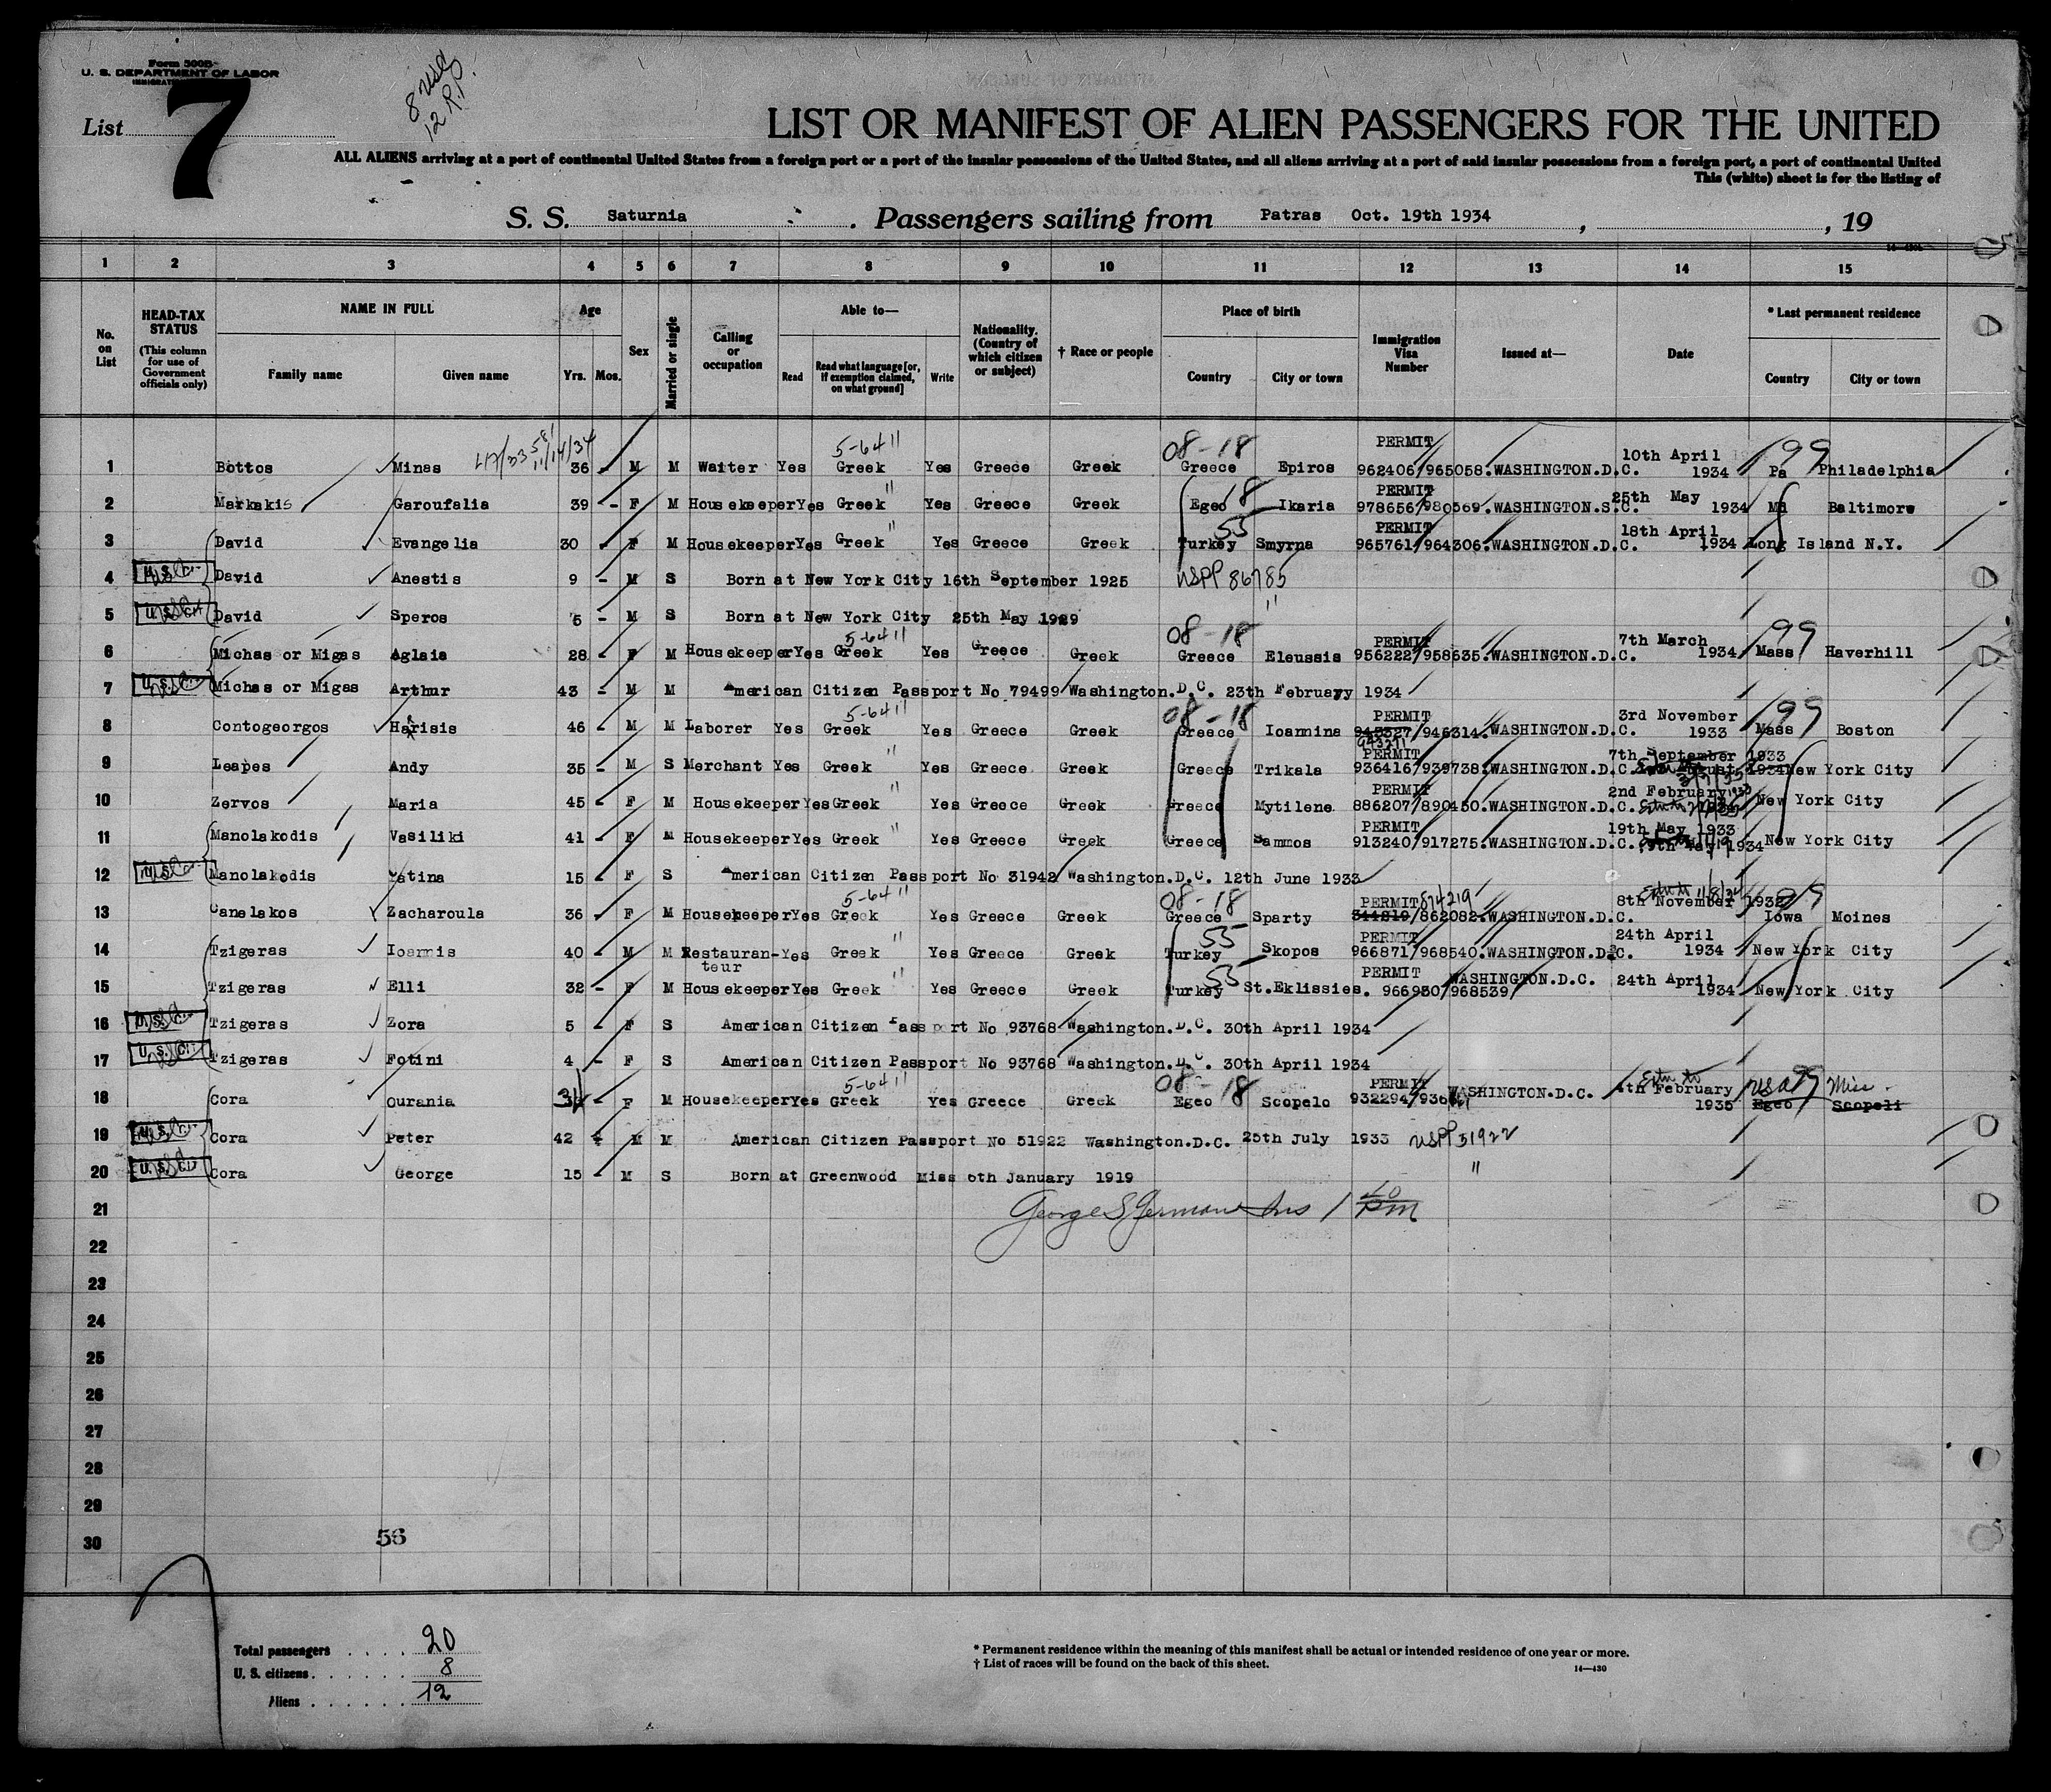 Form 500B
U. S. DEPARTMENT OF LABOR
List 7
8 USC
12 R.P.
LIST OR MANIFEST OF ALIEN PASSENGERS FOR THE UNITED
ALL ALIENS arriving at a port of continental United States from a foreign port or a port of the insular possessions of the United States, and all aliens arriving at a port of said insular possessions from a foreign port, a port of continental United
This (white) sheet is for the listing of
S. S. Saturnia . Passengers sailing from Patras Oct. 19th 1934 , , 19
1 2 3 4 5 6 7 8 9 10 11 12 13 14 15
No. on List
HEAD-TAX STATUS (This column for use of Government officials only)
NAME IN FULL Family name Given name
Age Yrs. Mos.
Sex
Married or single
Calling or occupation
Able to— Read Read what language [or, if exemption claimed, on what ground] Write
Nationality. (Country of which citizen or subject)
† Race or people
Place of birth Country City or town
Immigration Visa Number
Issued at—
Date
* Last permanent residence Country City or town
5-64 11 08-18 PERMIT 10th April 99
1 Bottos Minas 36 - M M Waiter Yes Greek Yes Greece Greek Greece Epiros 962406/965058.WASHINGTON.D.C. 1934 Pa Philadelphia
" 18 PERMIT 25th May
2 Markakis Garoufalia 39 - F M Housekeeper Yes Greek Yes Greece Greek Egeo Ikaria 978656/980569.WASHINGTON.S.C. 1934 Md Baltimore
" 55 PERMIT 18th April
3 David Evangelia 30 - F M Housekeeper Yes Greek Yes Greece Greek Turkey Smyrna 965761/964306.WASHINGTON.D.C. 1934 Long Island N.Y.
4 U. S. Cit. David Anestis 9 - M S Born at New York City 16th September 1925 USPP 86785
5 U. S. Cit David Speros 5 - M S Born at New York City 25th May 1929 "
5-64 11 08-18 PERMIT 7th March 99
6 Michas or Migas Aglaia 28 - F M Housekeeper Yes Greek Yes Greece Greek Greece Eleussis 956222/958535.WASHINGTON.D.C. 1934 Mass Haverhill
7 U. S. C. Michas or Migas Arthur 43 - M M American Citizen Passport No 79499 Washington.D.C. 23th February 1934
5-64 11 08-18 PERMIT 3rd November 99
8 Contogeorgos Harisis 46 - M M Laborer Yes Greek Yes Greece Greek Greece Ioannina /946314.WASHINGTON.D.C. 1933 Mass Boston
943271
" PERMIT 7th September 1933
9 Leapes Andy 35 - M S Merchant Yes Greek Yes Greece Greek Greece Trikala 936416/939738.WASHINGTON.D.C. 1934 New York City
" PERMIT 2nd February
10 Zervos Maria 45 - F M Housekeeper Yes Greek Yes Greece Greek Greece Mytilene 886207/890450.WASHINGTON.D.C. New York City
" PERMIT 19th May 1933
11 Manolakodis Vasiliki 41 - F M Housekeeper Yes Greek Yes Greece Greek Greece Sammos 913240/917275.WASHINGTON.D.C. 1934 New York City
12 U. S. C. Manolakodis Catina 15 - F S American Citizen Passport No 31942 Washington.D.C. 12th June 1933
5-64 11 08-18 PERMIT 874219 8th November 1932
13 Canelakos Zacharoula 36 - F M Housekeeper Yes Greek Yes Greece Greek Greece Sparty /862082.WASHINGTON.D.C. Iowa Moines
" 55 PERMIT 24th April
14 Tzigeras Ioannis 40 - M M Restauran- Yes Greek Yes Greece Greek Turkey Skopos 966871/968540.WASHINGTON.D.C. 1934 New York City
teur
" 55 PERMIT WASHINGTON.D.C. 24th April
15 Tzigeras Elli 32 - F M Housekeeper Yes Greek Yes Greece Greek Turkey St.Eklissies. 966930/968539 1934 New York City
16 U. S. C. Tzigeras Zora 5 - F S American Citizen Passport No 93768 Washington.D.C. 30th April 1934
17 U. S. Cit Tzigeras Fotini 4 - F S American Citizen Passport No 93768 Washington.D.C. 30th April 1934
5-64 11 08-18 PERMIT WASHINGTON.D.C. 4th February USA 99 Miss.
18 Cora Ourania 31 - F M Housekeeper Yes Greek Yes Greece Greek Egeo Scopelo 932294/ 1935 Egeo Scopeli
19 U. S. C. Cora Peter 42 - M M American Citizen Passport No 51922 Washington.D.C. 25th July 1933 USPP 51922
20 U. S. Cit Cora George 15 - M S Born at Greenwood Miss 6th January 1919 "
21 George S German Ins 1 40 PM
22
23
24
25
26
27
28
29
30
56
Total passengers . . . . 20
U. S. citizens . . . . . . 8
Aliens . . . . . . 12
* Permanent residence within the meaning of this manifest shall be actual or intended residence of one year or more.
† List of races will be found on the back of this sheet.
14—430